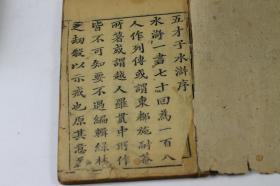 五才子水滸序
水滸一書七十回為一百八
人作列傳或謂東都施耐菴
所著或謂越人羅貫中所作
皆不可知要不過編輯綠林
之劫殺以示戒也原其意